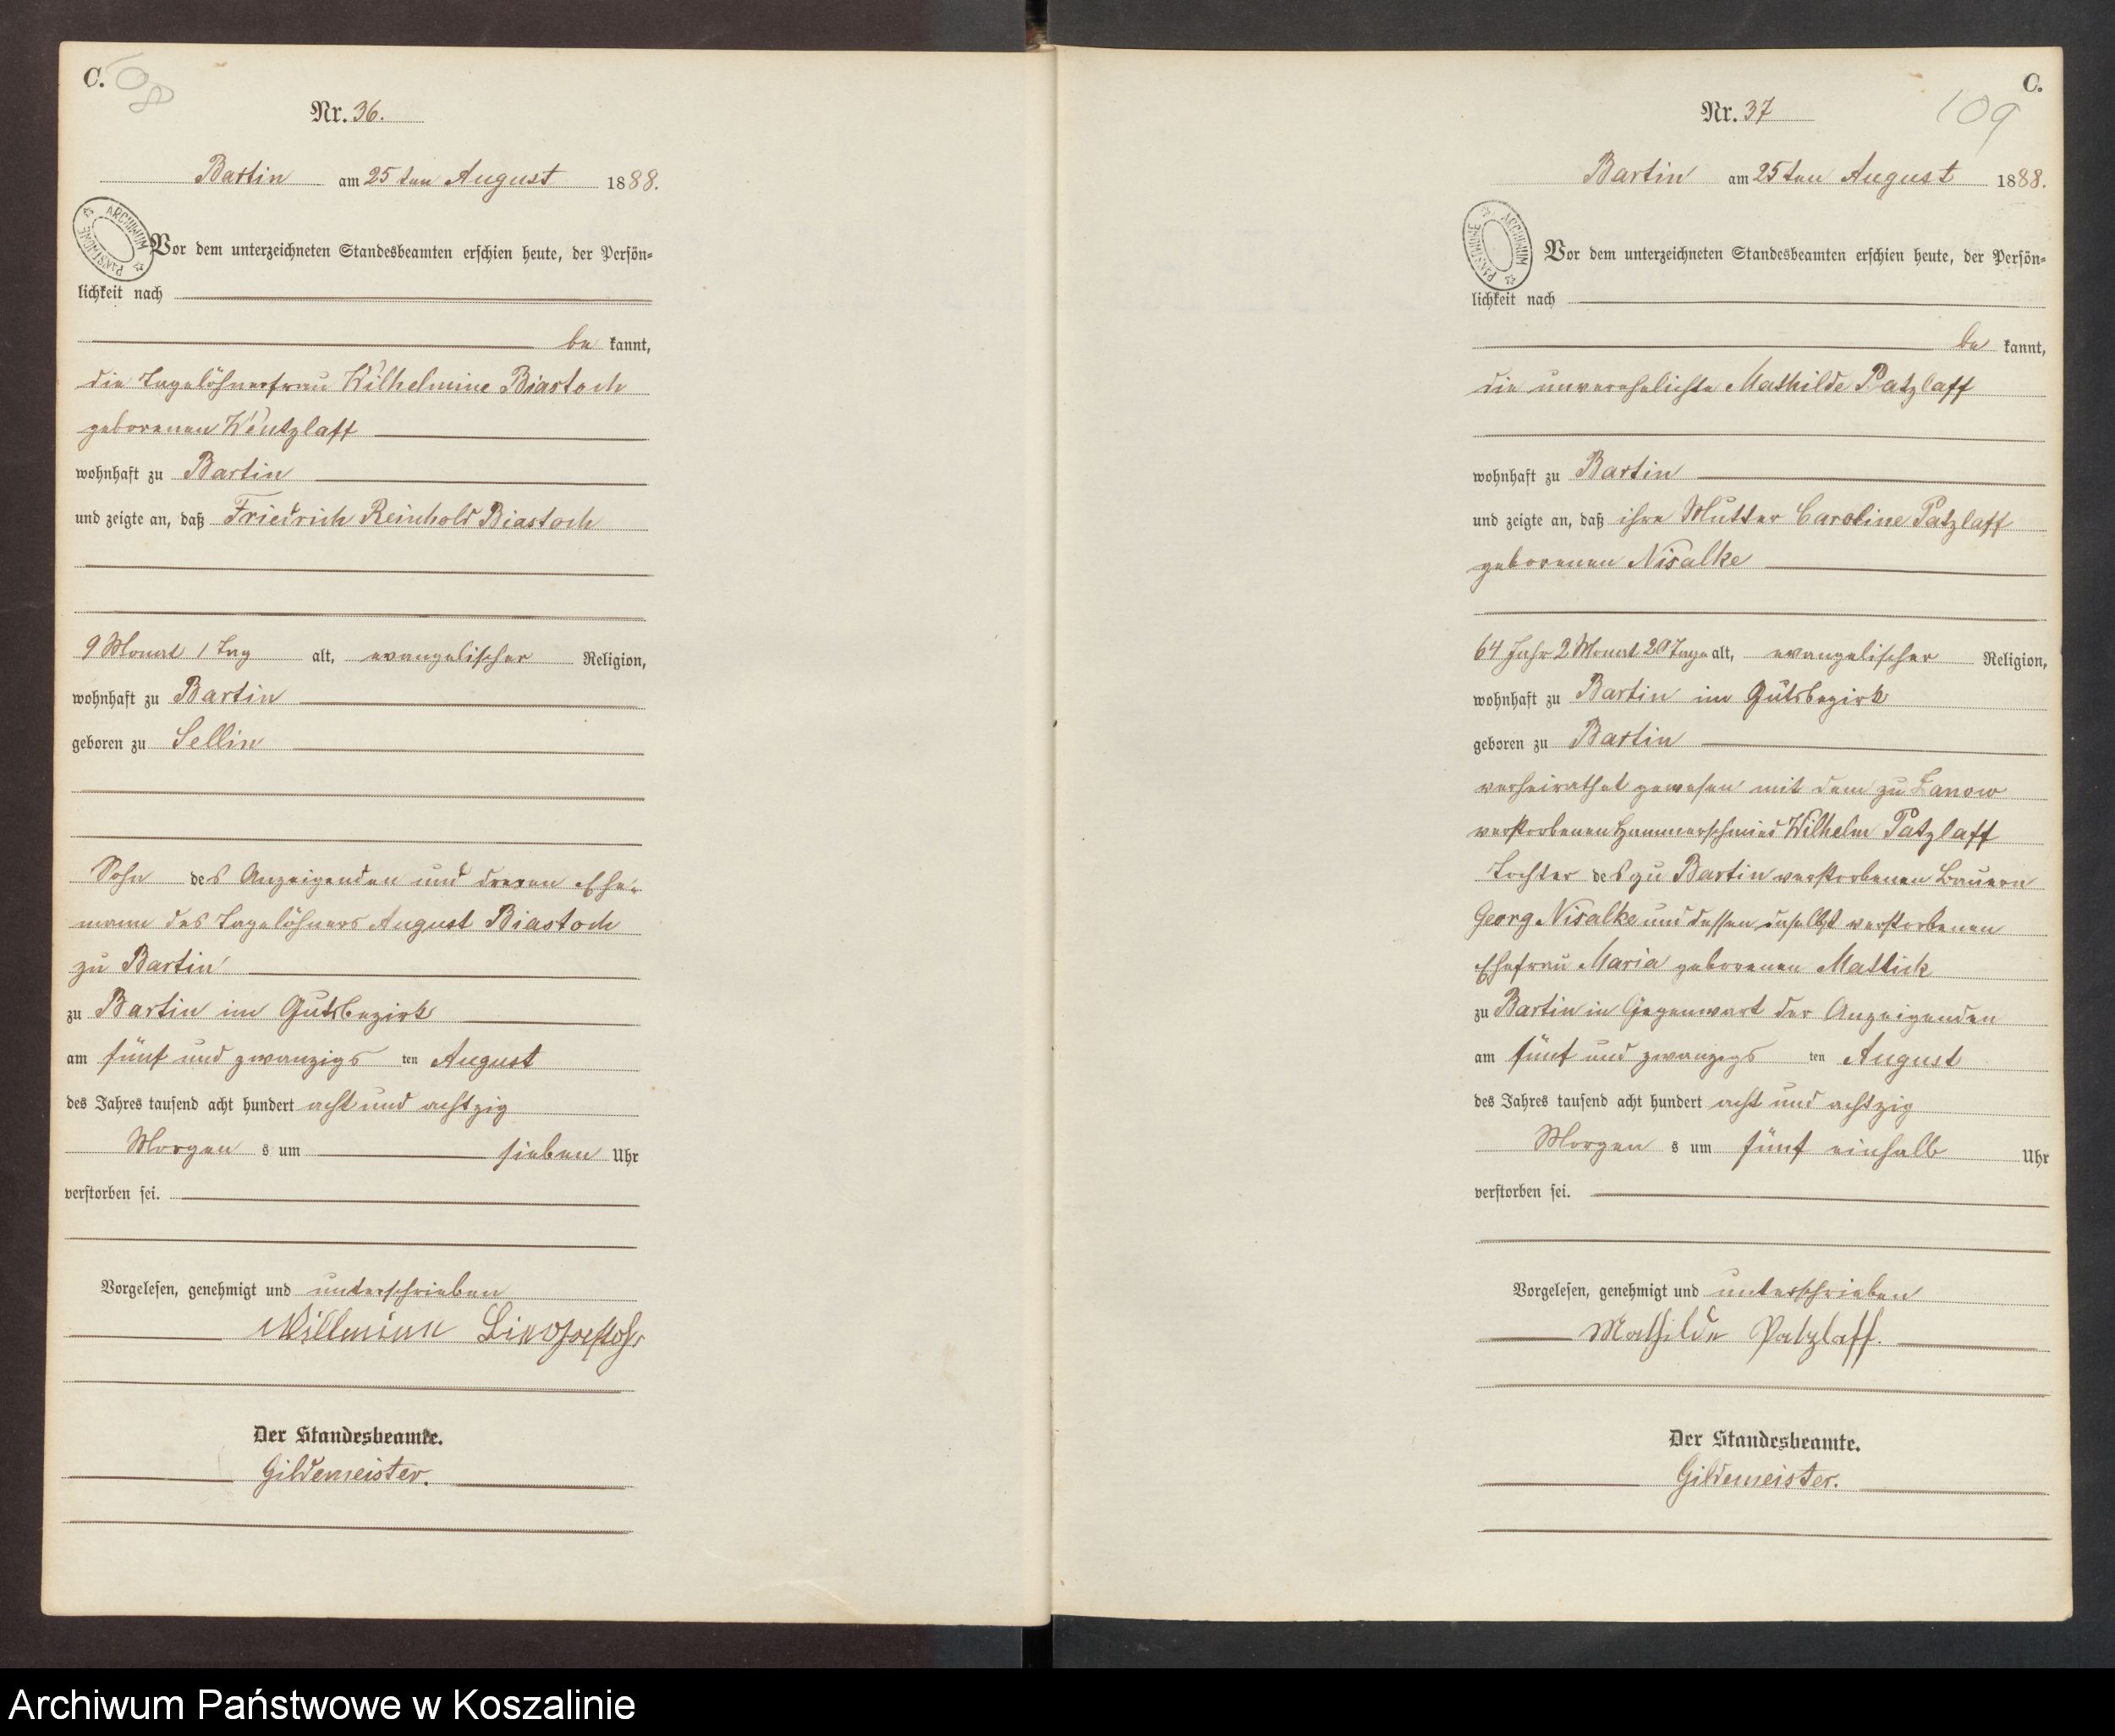 C. 108
Nr. 36.
Bartin am 25ten August 1888.
ARCHIWUM PAŃSTWOWE
Vor dem unterzeichneten Standesbeamten erschien heute, der Persön-
lichkeit nach
be kannt,
die Tagelöhnerfrau Wilhelmine Biastoch
geborenen Wentzlaff
wohnhaft zu Bartin
und zeigte an, daß Friedrich Reinhold Biastoch
9 Monat 1 Tag alt, evangelischer Religion,
wohnhaft zu Bartin
geboren zu Sellin
Sohn des Anzeigenden und deren Ehe-
mann des Tagelöhners August Biastoch
zu Bartin
zu Bartin im Gutsbezirk
am fünf und zwanzigs ten August
des Jahres tausend acht hundert acht und achtzig
Morgen s um sieben Uhr
verstorben sei.
Vorgelesen, genehmigt und unterschrieben
Der Standesbeamte.
Gildemeister.
C.
109
Nr. 37
Bartin am 25ten August 1888.
ARCHIWUM PAŃSTWOWE
Vor dem unterzeichneten Standesbeamten erschien heute, der Persön-
lichkeit nach
be kannt,
die unverehelichte Mathilde Patzlaff
wohnhaft zu Bartin
und zeigte an, daß ihre Mutter Caroline Patzlaff
geborenen Nisalke
64 Jahr 2 Monat 20 Tage alt, evangelischer Religion,
wohnhaft zu Bartin im Gutsbezirk
geboren zu Bartin
verheirathet gewesen mit dem zu Zanow
verstorbenen Hammerschmied Wilhelm Patzlaff
Tochter des zu Bartin verstorbenen Bauern
Georg Nisalke und dessen daselbst verstorbenen
Ehefrau Maria geborenen Mattick
zu Bartin in Gegenwart der Anzeigenden
am fünf und zwanzigs ten August
des Jahres tausend acht hundert acht und achtzig
Morgen s um fünf einhalb Uhr
verstorben sei.
Vorgelesen, genehmigt und unterschrieben
Mathilde Patzlaff.
Der Standesbeamte.
Gildemeister.
Archiwum Państwowe w Koszalinie